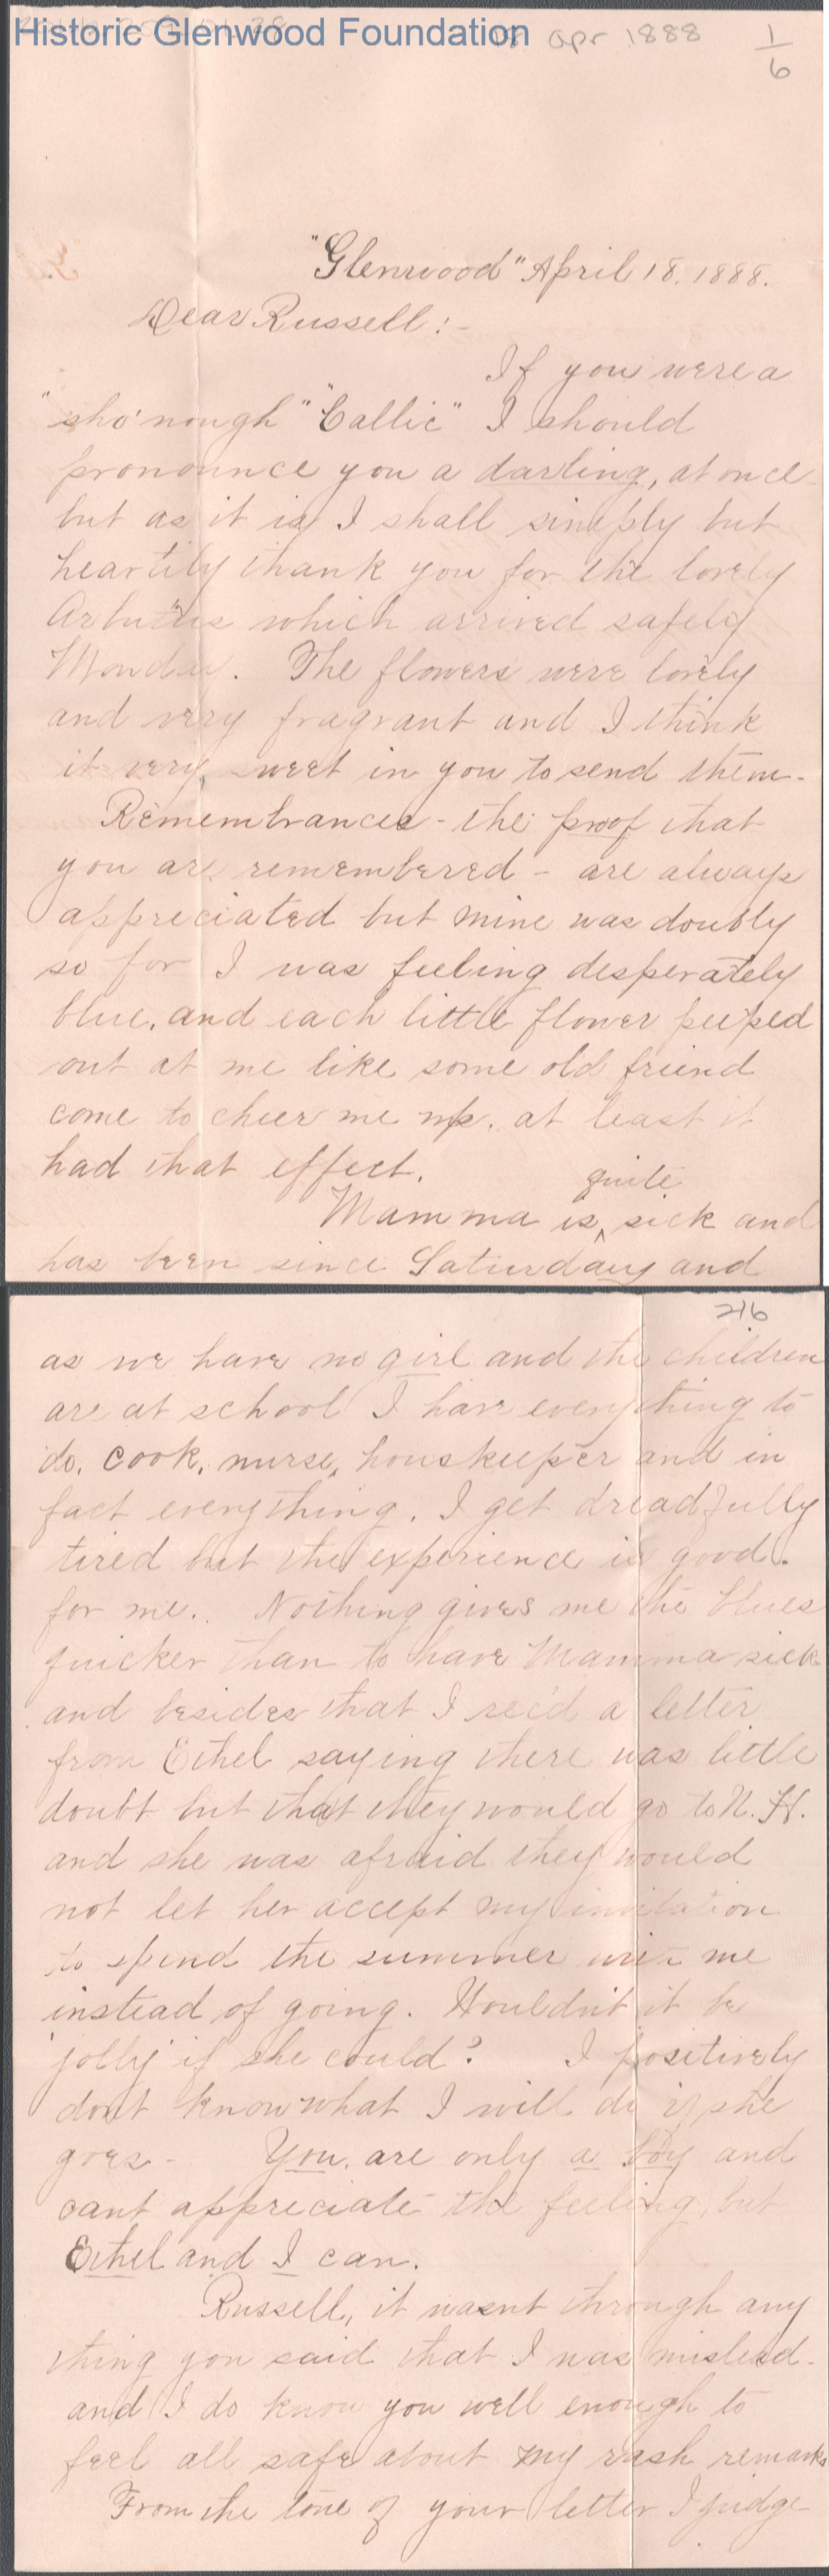 Historic Glenwood Foundation
18 apr 1888
1/6
"Glenwood" April 18. 1888.
Dear Russell:-
If you were a
"sho'nough" "Callie" I should
pronounce you a darling, at once
but as it is I shall simply but
heartily thank you for the lovely
Arbutus which arrived safely
Monday. The flowers were lovely
and very fragrant and I think
it very sweet in you to send them-
Remembrances - the proof that
you are remembered - are always
appreciated but mine was doubly
so for I was feeling desperately
blue, and each little flower peeped
out at me like some old friend
come to cheer me up. at least it
had that effect.
quite
Mamma is ^ sick and
has been since Saturday and
2/6
as we have no girl and the children
are at school I have everything to
do. cook, nurse, houskeeper and in
fact everything. I get dreadfully
tired but the experience is good.
for me.. Nothing gives me the blues
quicker than to have Mamma sick
and besides that I rec'd a letter
from Ethel saying there was little
doubt but that they would go to N. H.
and she was afraid they would
not let her accept my invitation
to spend the summer with me
instead of going. Wouldn't it be
'jolly' if she could? I positively
dont know what I will do if she
goes- You, are only a boy and
cant appreciate the feeling, but
Ethel and I can.
Russell, it wasnt through any
thing you said that I was mislead-
and I do know you well enough to
feel all safe about my rash remarks
From the tone of your letter I judge